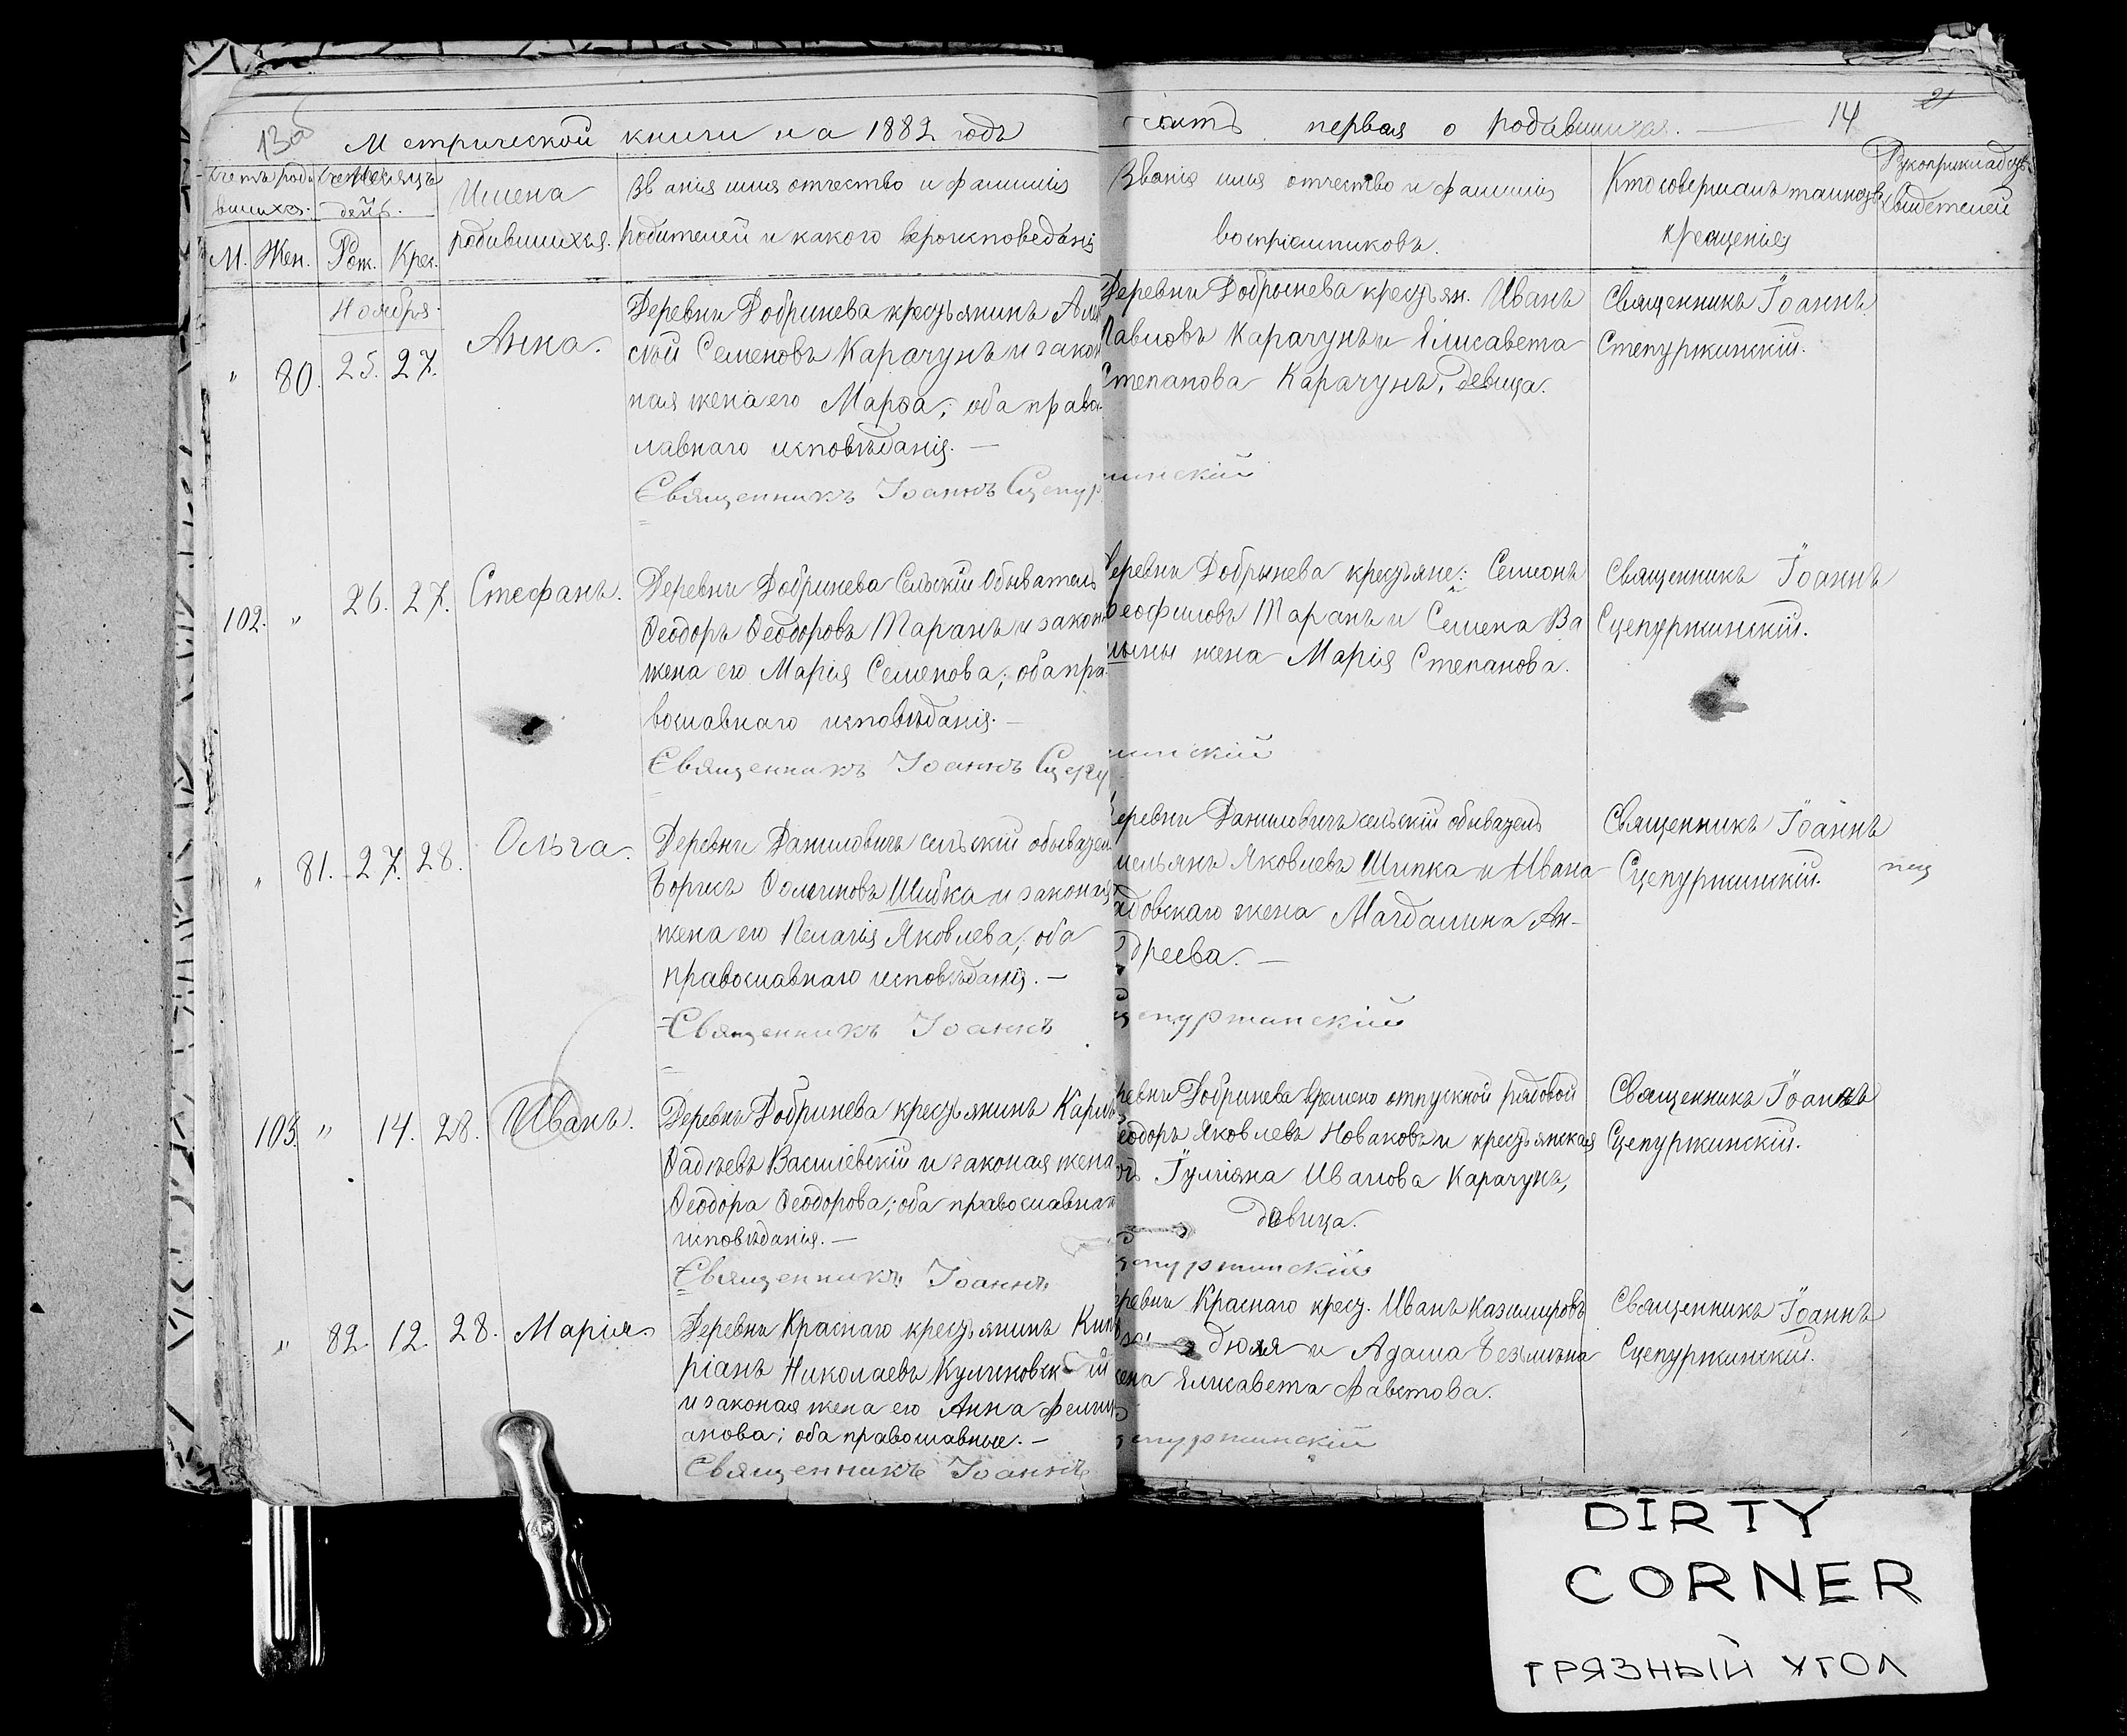 Метрической книги на 1882 годъ
часть первая о родившихся. 14
21
Имена родившихся.
Званія имя отчество и фамилія
родителей и какого вѣроисповеданія
М. Жен. Рож. Крес.
Званія имя отчество и фамилія
воспріемниковъ.
Кто совершалъ таинство
крещенія
свидетелей
Ноября.
" 80. 25. 27. Анна.
Деревни Добринева крестьянинъ Алек
сѣй Семеновъ Карачунъ и закон
ная жена его Марѳа; оба право
лавнаго исповѣданія. —
Священникъ Іоаннъ Сцепур
Деревни Добрынева крестьян. Иванъ
Павловъ Карачунъ и Елисавета
Степанова Карачунъ, девица.
жинскій
Священникъ Іоаннъ
Степуржинскій.
102. " 26. 27. Стефанъ.
Деревни Добринева Сельскій Обыватель
Ѳеодоръ Ѳеодоровъ Таранъ и закон
жена его Марія Семенова; оба пра
вославнаго исповѣданія. —
Священникъ Іоаннъ Сцепу
Деревни Добрынева крестьяне: Семіонъ
Ѳеофиловъ Таранъ и Семена Ва
жена Марія Степанова.
жинскій
Священникъ Іоаннъ
Сцепуржинскій.
" 81. 27. 28. Ольга.
Деревни Даниловичъ сельскій обывател
Борисъ Шибка и законая
жена его Пелагія Яковлева; оба
православнаго исповѣданія. —
Священникъ Іоаннъ
Деревни Даниловичъ сельскій обыватель
мельянъ Яковлевъ Шипка и Ивана
адовскаго жена Магдалина Ан-
дреева. —
цепуржинскій
Священникъ Іоаннъ
Сцепуржинскій.
103. " 14. 28. Иванъ.
Деревни Добринева крестьянинъ Карпъ
Ѳадѣевъ Василевскій и законая жена
Ѳеодора Ѳеодорова; оба православнаго
исповѣданія. —
Священникъ Іоаннъ
ревни Добринева времено отпускной рядовой
Ѳеодоръ Яковлевъ Новаковъ и крестьянская
Іуліяна Иванова Карачунъ,
девица.
цепуржинскій
Священникъ Іоаннъ
Сцепуржинскій.
" 82. 12. 28. Марія
Деревни Краснаго крестьянинъ Кип
ріанъ Николаевъ Куликовскій
и законая жена его Анна Фелици
анова; оба православные. —
Священникъ Іоаннъ
еревни Краснаго крест. Иванъ Казимировъ
дюля и Адама
жена Елисавета Фавстова.
цепуржинскій
Священникъ Іоаннъ
Сцепуржинскій.
DIRTY
CORNER
ГРЯЗНЫЙ УГОЛ